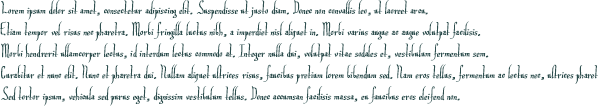 Lorem ipsum dolor sit amet, consectetur adipiscing elit. Suspendisse ut justo diam. Donec non convallis leo, ut laoreet arcu.
Etiam tempor vel risus nec pharetra. Morbi fringilla luctus nibh, a imperdiet nisl aliquet in. Morbi varius augue ac augue volutpat facilisis.
Morbi hendrerit ullamcorper lectus, id interdum lectus commodo at. Integer nulla dui, volutpat vitae sodales et, vestibulum fermentum sem.
Curabitur et nunc elit. Nunc et pharetra dui. Nullam aliquet ultrices risus, faucibus pretium lorem bibendum sed. Nam eros tellus, fermentum ac lectus nec, ultrices pharet
Sed tortor ipsum, vehicula sed purus eget, dignissim vestibulum tellus. Donec accumsan facilisis massa, eu faucibus eros eleifend non.